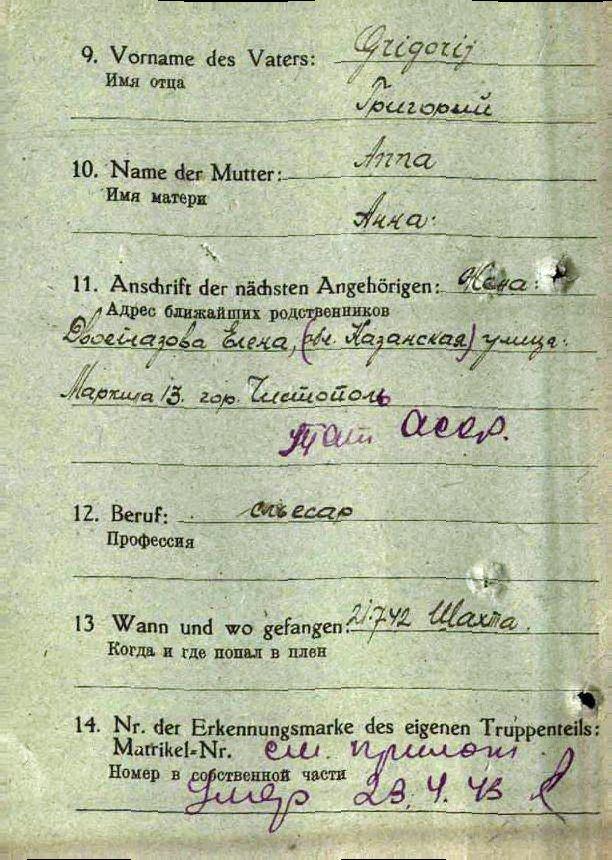 9. Vorname des Vaters: Grigorij
Имя отца
Григорий
10. Name der Mutter: Anna
Имя матери
Анна.
11. Anschrift der nächsten Angehörigen: Жена:
Адрес ближайших родственников
Двоеглазова Елена, (обл. Казанская) улица:
Маркина 13. гор. Чистополь
Тат АССР.
12. Beruf: слесар
Профессия
13 Wann und wo gefangen: 21.7.42 Шахта.
Когда и где попал в плен
14. Nr. der Erkennungsmarke des eigenen Truppenteils:
Matrikel-Nr. см. прилож
Номер в собственной части
Умер 23.4.43